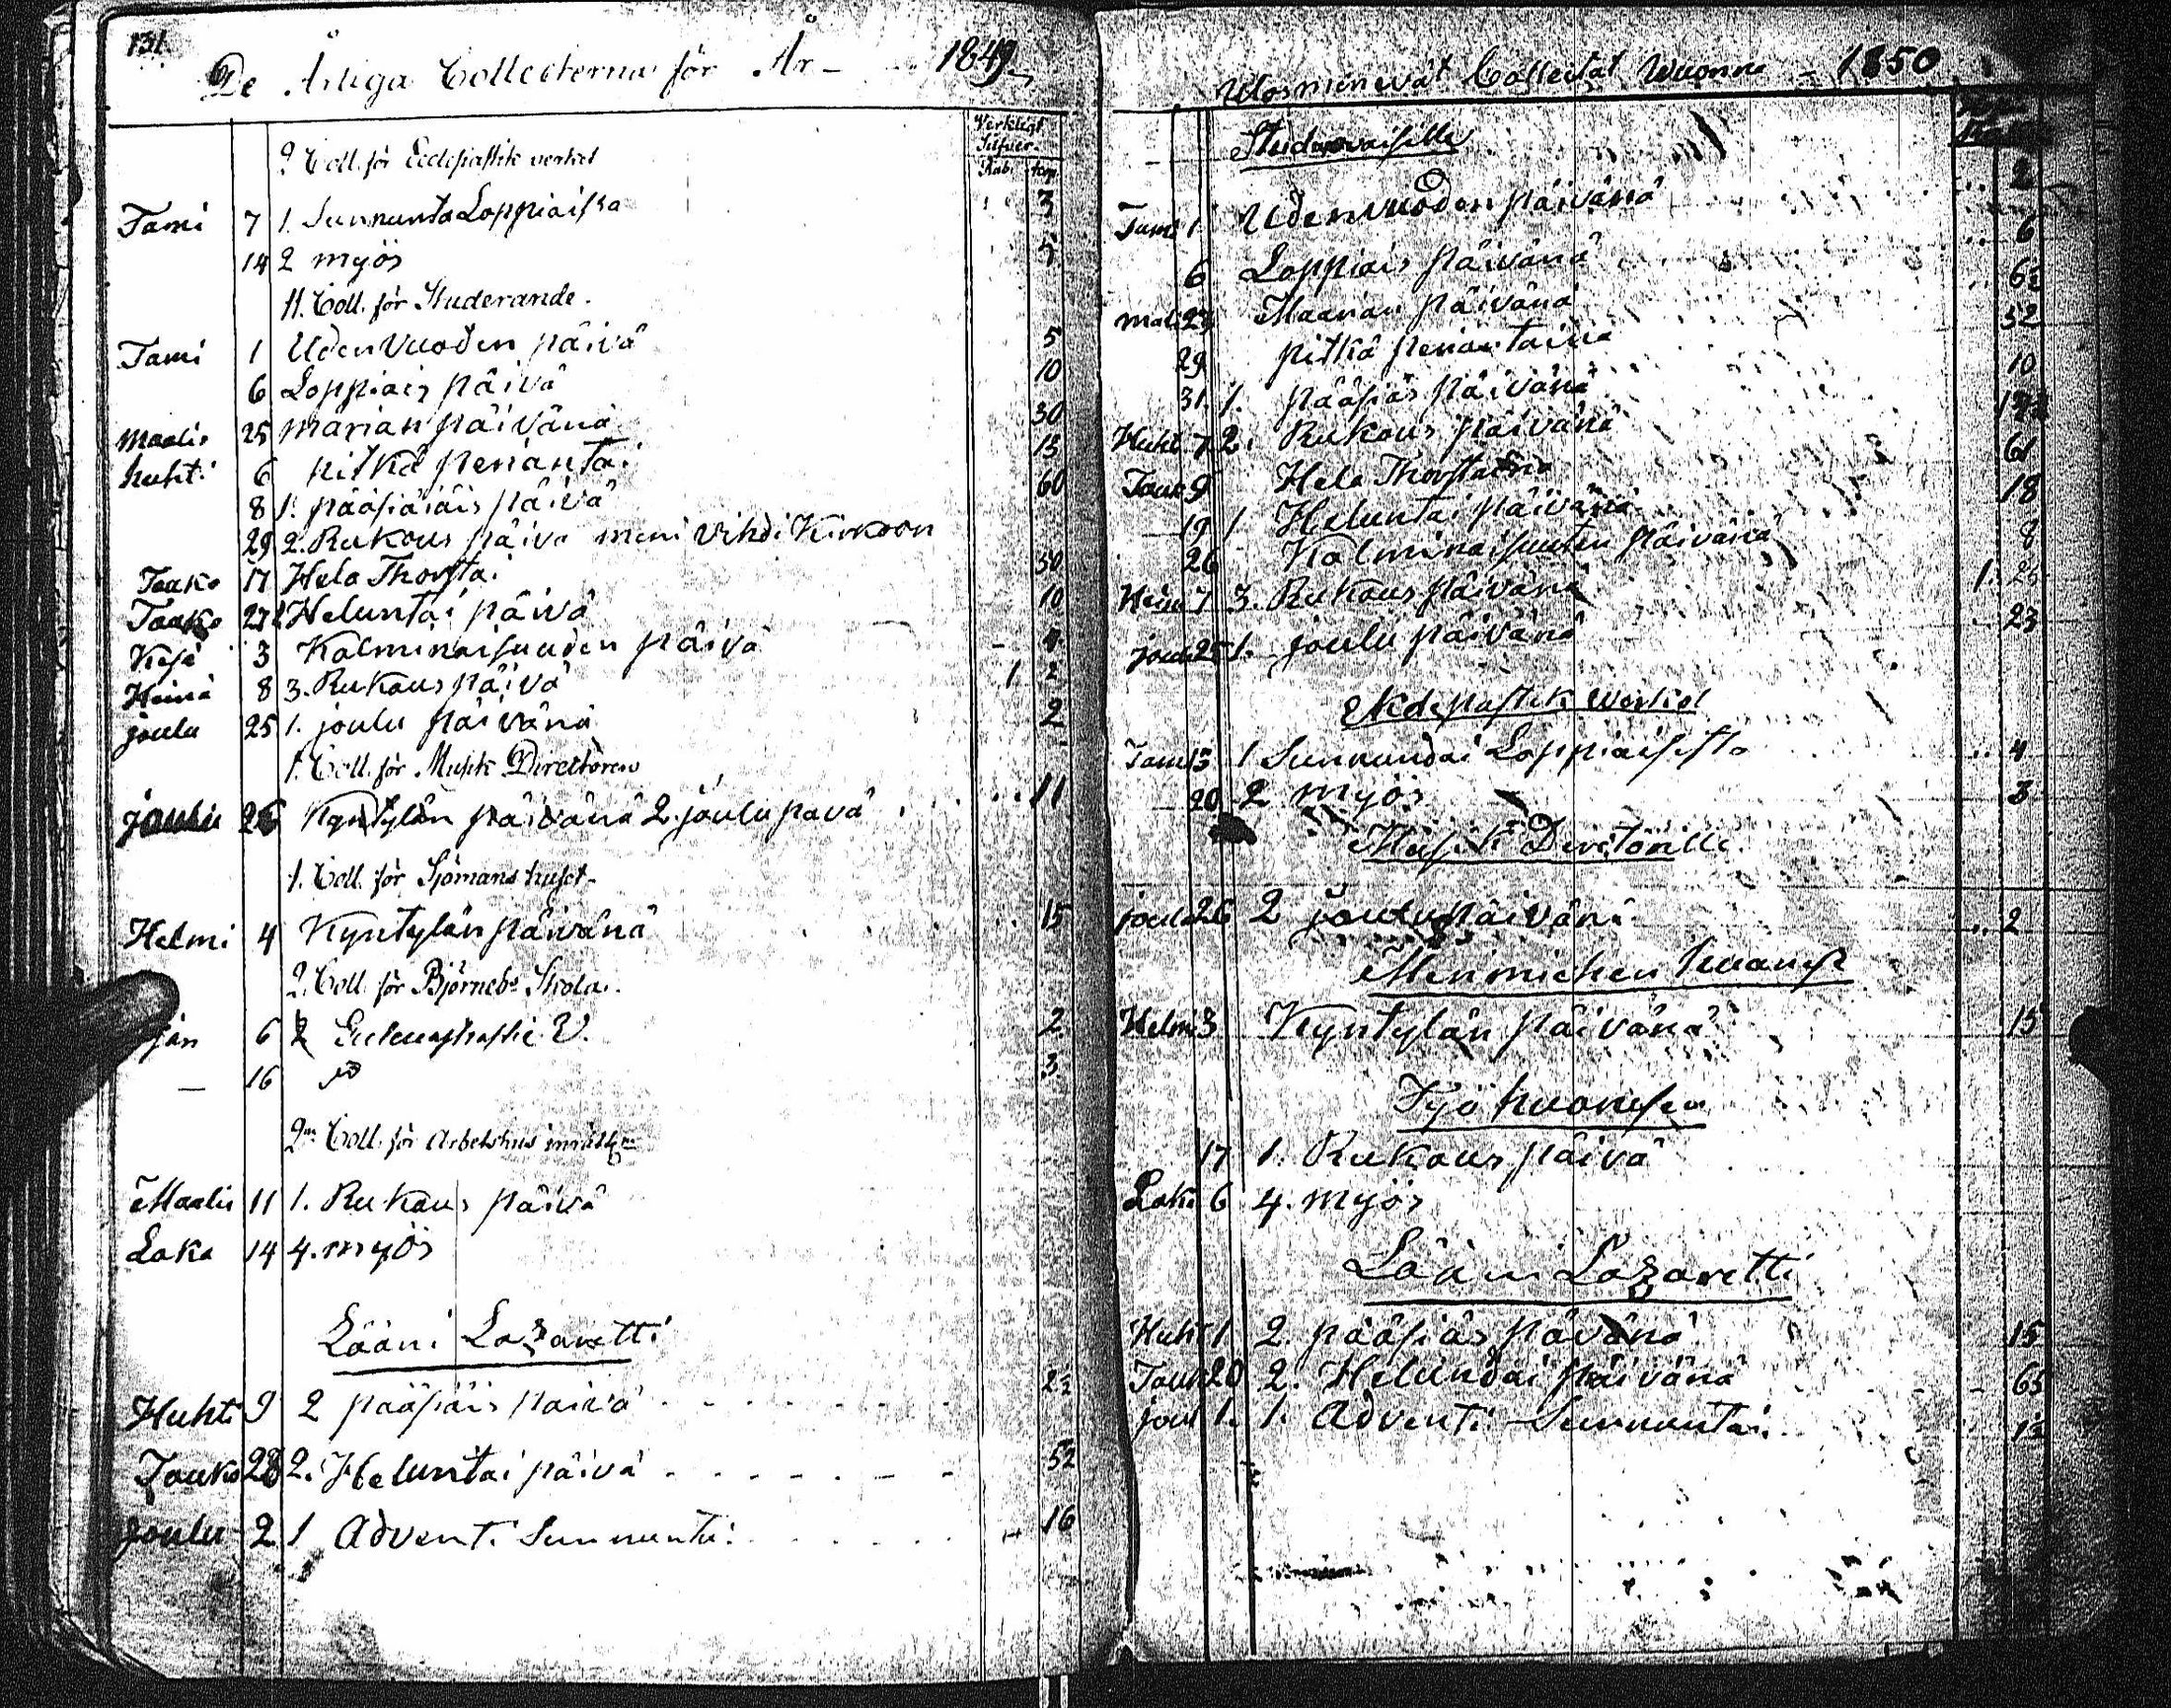 131.
De Årliga Collecterna för År - 1849
Verkligt Silfver.
Rub. kop.
2 Coll. för Ecclesiastik verket
Tami 7 1. Sunnunta Loppiaissa 3
14 2 myös 5
11. Coll. för Studerande.
Tami 1 Uden Vuoden päivä 5
6 Loppiais päivä 10
Maalis 25 marian päivänä 30
huhti 6 pitkä perjanta 13
8 1. pääsiäiäis päivä 60
29 2. Rukous päivä meni Vihdi Kirkoon
Touko 17 Hela Thorstai 30
Touko 27 1 Heluntai päivä 10
Kesä 3 Kolminaisuuden päivä 4
Heinä 8 3. Rukous päivä 1 2
joulu 25 1. joulu päivänä 2
1. Coll. för Musik Directören
joulu 26 Kyntylän päivänä 2. joulu pävä 11
1. Coll. för Sjömanshuset
Helmi 4 Kyntylän päivänä 15
2. Coll. för Björnebs Skola.
6 2 2
16 3
2ne Coll. för Arbetshus
Maalis 11 1. Rukaus päivä
Loka 14 4. myös
Lääni Lazaretti
Huhti 9 2 pääsiäis päivä 2½
Touko 28 2. Heluntai päivä 52
Joulu 2 1 Advent Sunnuntai 16
Ulosmenevät Collectat Wuonna - 1850
Studeravaisille 2
Tami 1 Uden vuoden päivänä 6
6 Loppiais päivänä 6½
Mali Maarian päivänä 32
29 pitkä perjantaina 10
31. 1. pääsiäs päivänä
Huht 7 2. Rukous päivänä 61
Touk 9 Hela Thorstaina 18
19 1 Heluntai päivänä 8
26 Kolminaisuuten päivänä
Hein 7 3. Rukous päivänä
joulu 25 1. joulu päivänä 23
Ekclesiastik Werket
Tami 13 1 Sunnundai Loppiaisesta 4
20 2 myös 3
Musik Directörille
joulu 26 2 joulu päivänä 2
Merimiehen huonest
Helmi 3 Kyntylän päivänä 15
Työ huonesen
17 1. Rukous päivä
Loka 6 4. myös
Lääni Lazaretti
Huht 1 2. pääsiäs pävänä 15
Touk 20 2. Helundai päivänä 65
joul 1. 1. Adventi Sunnuntai